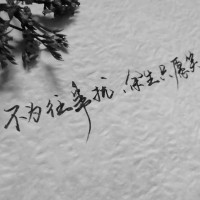 不为往事扰,余生只愿笑